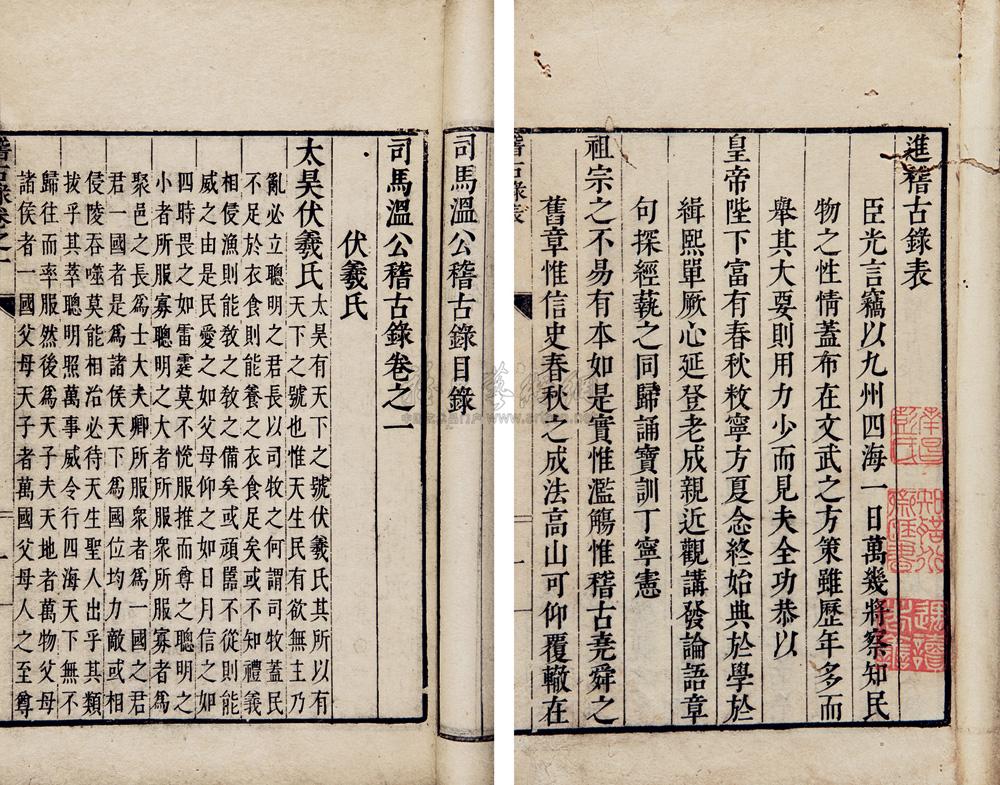 進稽古錄表
臣光言竊以九州四海一日萬幾將察知民
物之性情蓋布在文武之方策雖歷年多而
舉其大要則用力少而見夫全功恭以
皇帝陛下富有春秋敉寧方夏念終始典於學於
緝熙單厥心延登老成親近觀講發論語章
句探經蓺之同歸誦寶訓丁寧憲
祖宗之不易有本如是實惟濫觴惟稽古堯舜之
舊章惟信史春秋之成法高山可仰覆轍在
稽古錄表
一
司馬溫公稽古錄目錄
司馬溫公稽古錄卷之一
伏羲氏
太昊伏羲氏太昊有天下之號伏羲氏其所以有
天下之號也惟天生民有欲無主乃
亂必立聰明之君長以司牧之何謂司牧蓋民
不足於衣食則能養之衣食足矣或不知禮義
相侵漁則能敎之敎之備矣或頑嚚不從則能
威之由是民愛之如父母仰之如日月信之如
四時畏之如雷霆莫不悅服推而尊之聰明之
小者所服寡聰明之大者所服眾所服寡者爲
聚邑之長爲士大夫卿所服眾者爲一國之君
君一國者是爲諸侯天下爲國位均力敵或相
侵陵吞噬莫能相治必待天生聖人出乎其類
拔乎其萃聰明照萬事威令行四海天下無不
歸往而率服然後爲天子夫天地者萬物父母
諸侯者一國父母天子者萬國父母人之至尊
稽古錄卷之一
一